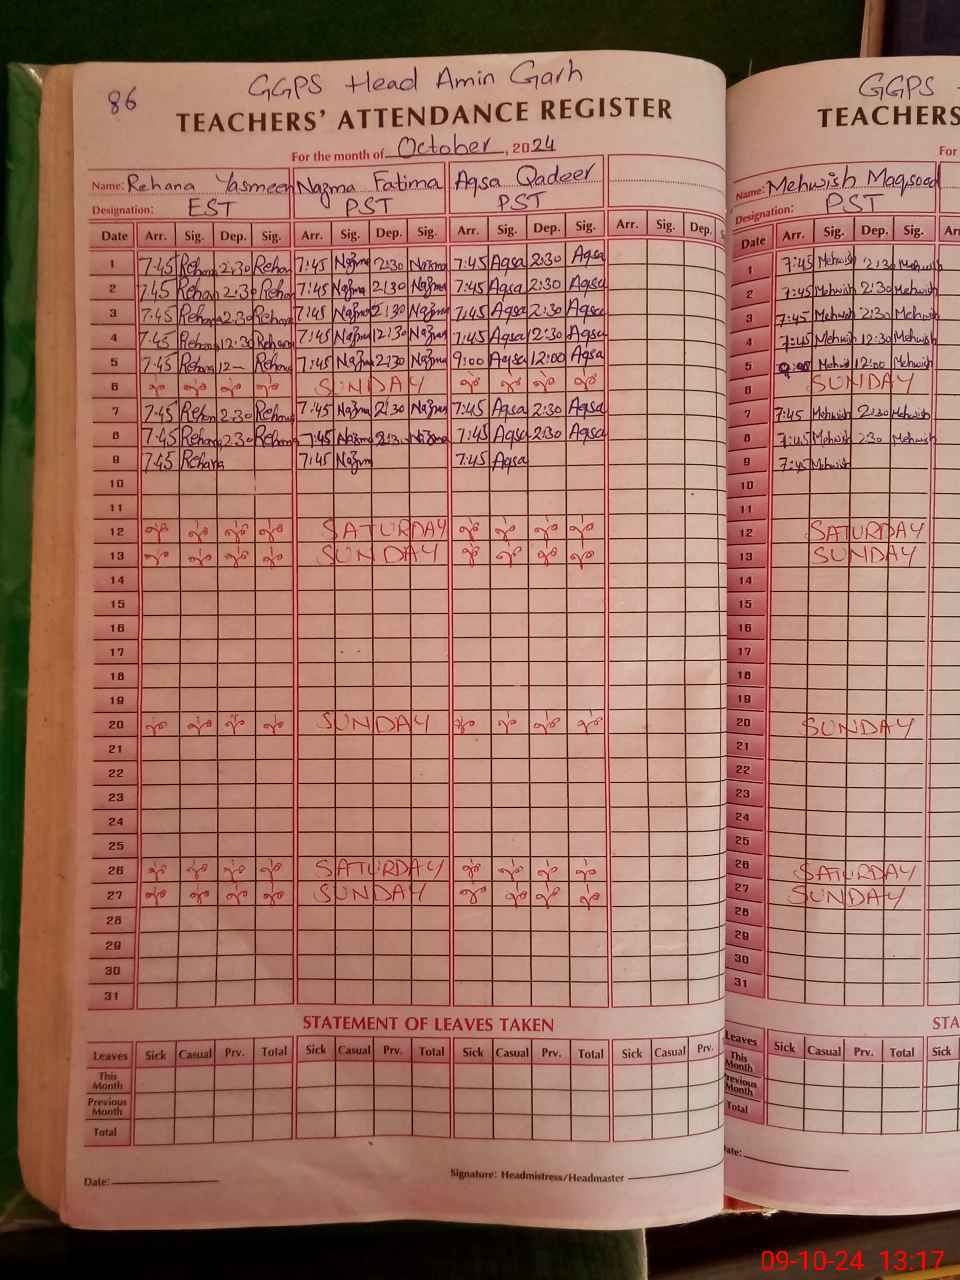 86
GGPS Head Amin Garh
TEACHERS' ATTENDANCE REGISTER
For the month of October, 2024
Name: Rehana Yasmeen Nazma Fatima Aqsa Qadeer
Designation: EST PST PST
Date Arr. Sig. Dep. Sig. Arr. Sig. Dep. Sig. Arr. Sig. Dep. Sig. Arr. Sig. Dep.
1 7:45 Rehana 2:30 Rehan 7:45 Nazma 2:30 Nazma 7:45 Aqsa 2:30 Aqsa
2 7:45 Rehan 2:30 Rehan 7:45 Nazma 2:30 Nazma 7:45 Aqsa 2:30 Aqsa
3 7:45 Rehana 2:30 Rehana 7:45 Nazma 2:30 Nazma 7:45 Aqsa 2:30 Aqsa
4 7:45 Rehana 12:30 Rehana 7:45 Nazma 12:30 Nazma 7:45 Aqsa 12:30 Aqsa
5 7:45 Rehana 12 Rehana 7:45 Nazma 2:30 Nazma 9:00 Aqsa 12:00 Aqsa
6 SUNDAY
7 7:45 Rehan 2:30 Rehana 7:45 Nazma 2:30 Nazma 7:45 Aqsa 2:30 Aqsa
8 7:45 Rehana 2:30 Rehana 7:45 Nazma 2:30 Nazma 7:45 Aqsa 2:30 Aqsa
9 7:45 Rehana 7:45 Nazm 7:45 Aqsa
10
11
12 SATURDAY
13 SUNDAY
14
15
16
17
18
19
20 SUNDAY
21
22
23
24
25
26 SATURDAY
27 SUNDAY
28
29
30
31
STATEMENT OF LEAVES TAKEN
Leaves Sick Casual Prv. Total Sick Casual Prv. Total Sick Casual Prv. Total Sick Casual Prv.
This Month
Previous Month
Total
Date:
Signature: Headmistress/Headmaster
GGPS
TEACHERS
For
Name: Mehwish Maqsood
Designation: PST
Date Arr. Sig. Dep. Sig.
1 7:45 Mehwish 2:30 Mehwish
2 7:45 Mehwish 2:30 Mehwish
3 7:45 Mehwish 2:30 Mehwish
4 7:45 Mehwish 12:30 Mehwish
5 Mehwi 12:00 Mehwish
6 SUNDAY
7 7:45 Mehwish 2:30 Mehwish
8 7:45 Mehwish 2:30 Mehwish
9 7:45 Mehwish
10
11
12 SATURDAY
13 SUNDAY
14
15
16
17
18
19
20 SUNDAY
21
22
23
24
25
26 SATURDAY
27 SUNDAY
28
29
30
31
STA
Leaves Sick Casual Prv. Total Sick
This Month
Previous Month
Total
ate:
09-10-24 13:17